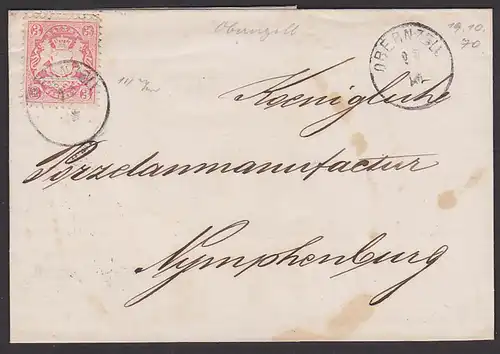 3 3
Obernzell
19.10.
70
OBERNZELL
Koenigliche
Porzelanmanufactur
Nymphenburg